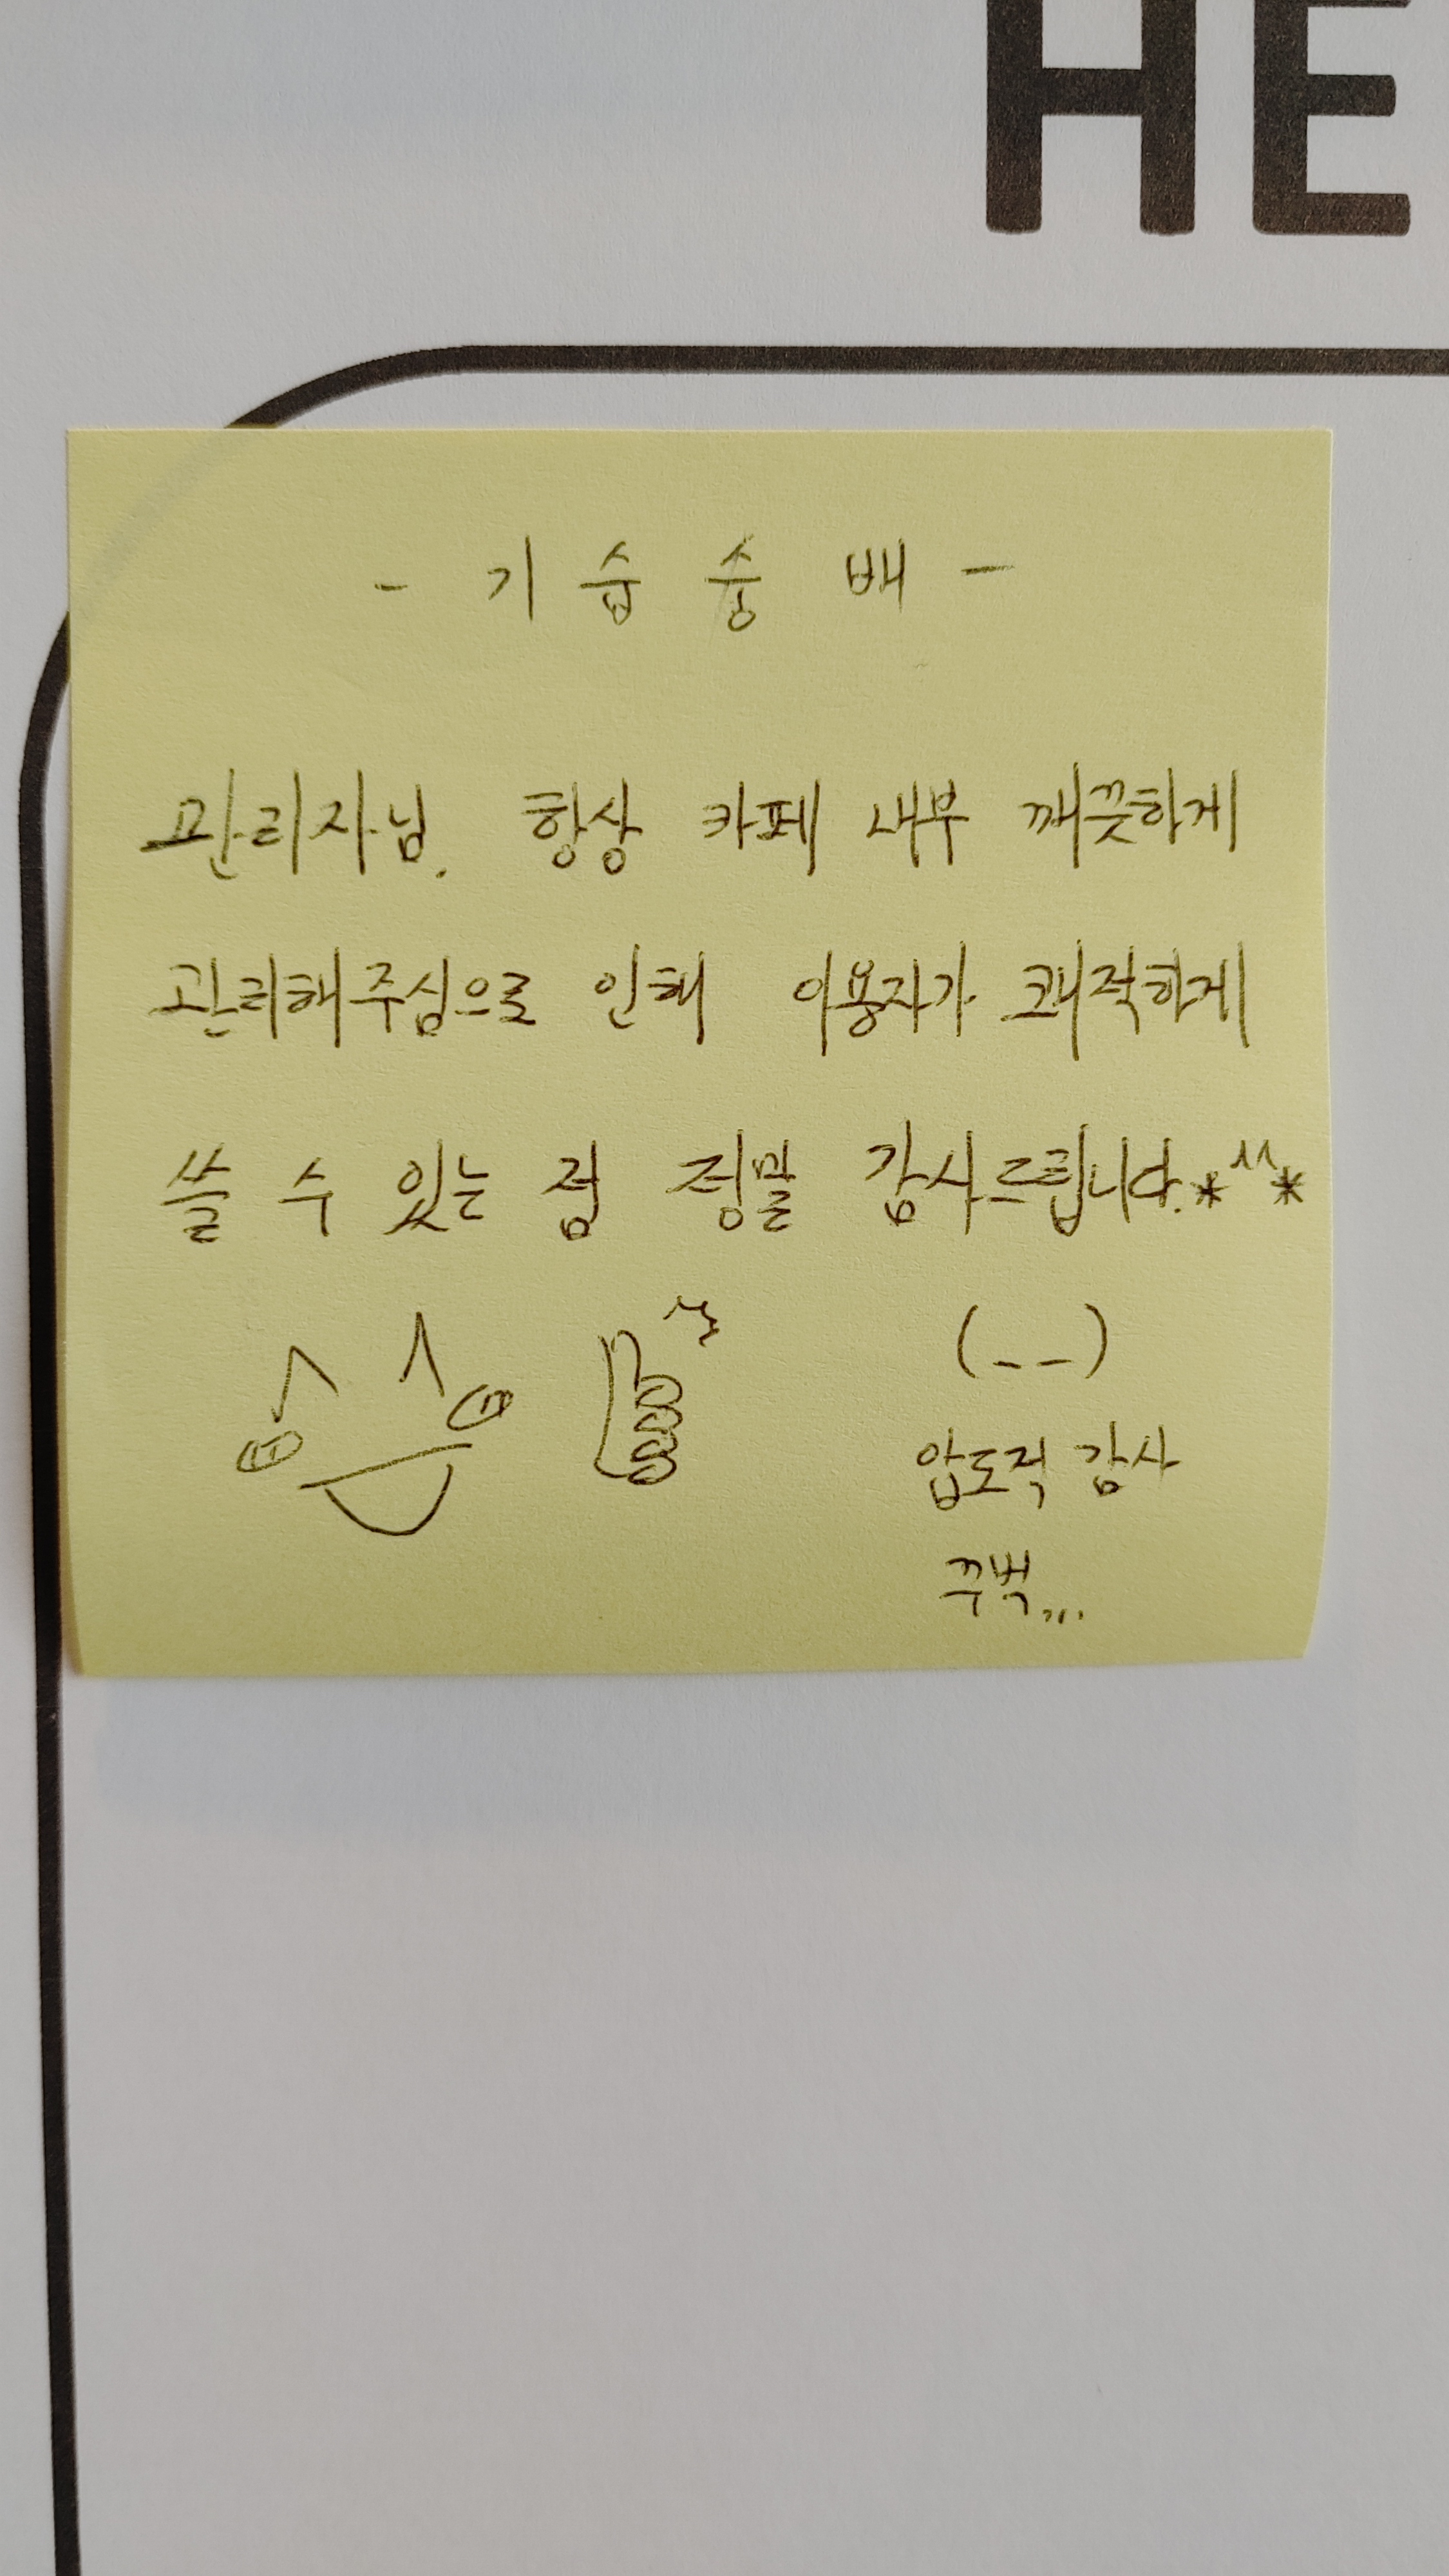 HE
- 기습숭배 -
관리자님. 항상 카페 내부 깨끗하게
관리해주심으로 인해 이용자가 쾌적하게
쓸 수 있는 점 정말 감사드립니다.*^^*
(__)
압도적 감사
꾸벅...